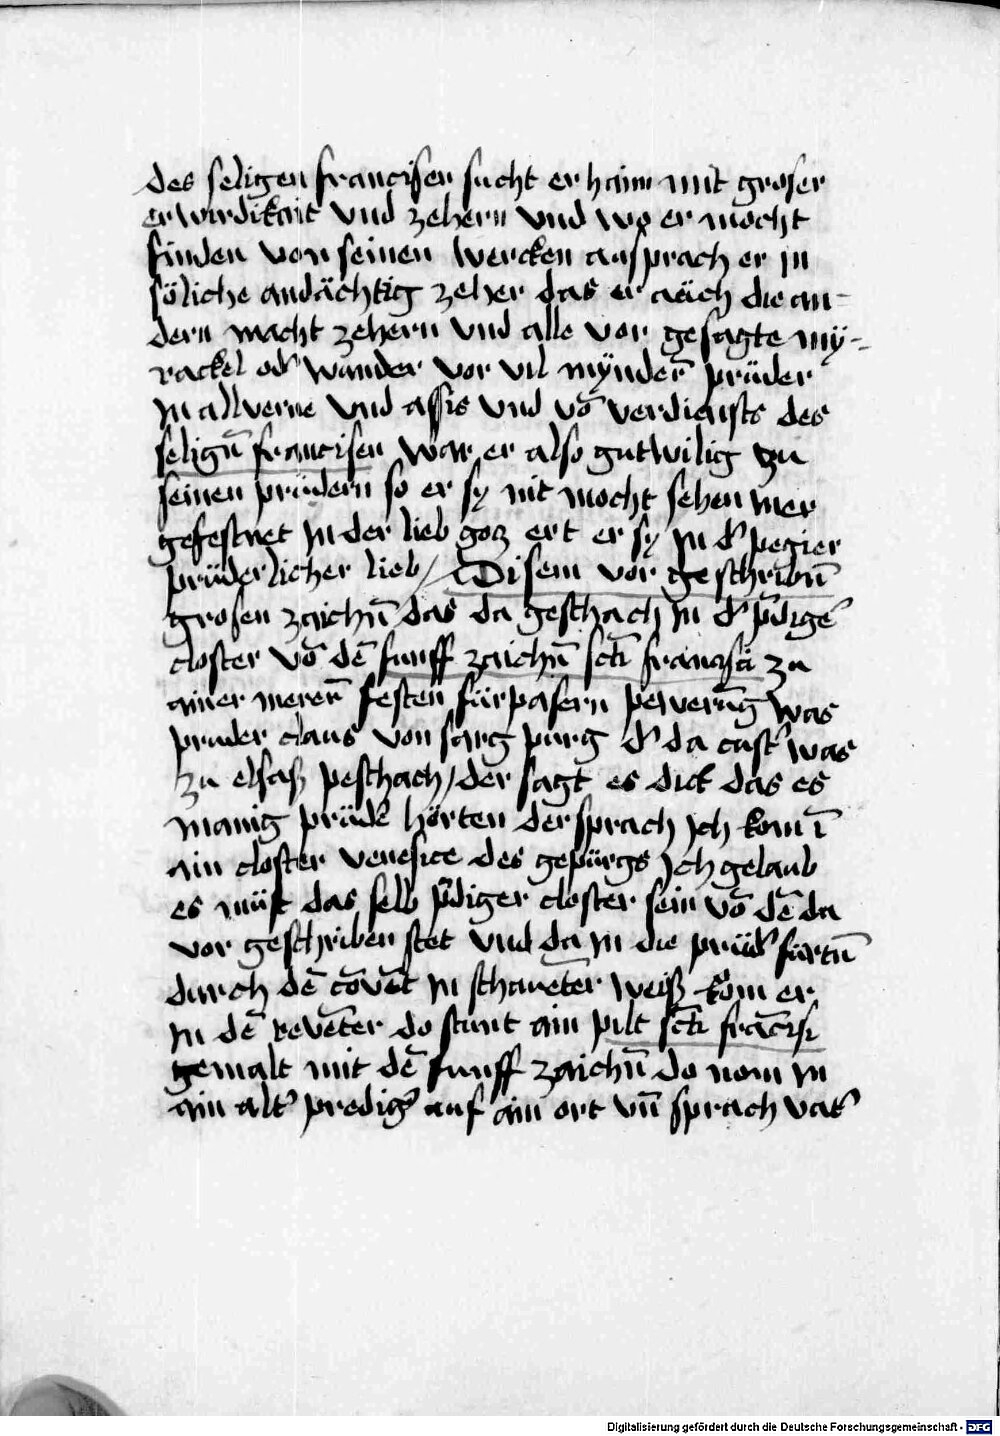 des seligen francisen sucht er haim mit groser
erwirdikait vnd zehern vnd wo er mocht
finden von seinen wercken ansprach er in
söliche andächtig zeher das er aüch die an-
dern macht zehern vnd alle vor gesagte my-
rackel od' wunder vor vil mynder̄ prüder
in allverne vnd assis vnd vō verdiensts des
selign̄ francisen war er also gutwilig zu
seinen prüdern so er sy nit mocht sehen mer
gefestnet in der lieb gocz ert er sy in d' pegier
prüderlicher lieb / Disem vor geschribn̄
grosen zaichn̄ das da geschach in d' p̄dige'
closter vō dē funff zaichn̄ scti francisci zu
ainer merer̄ festen fürpasern peweru̅g was
pruder claus von sarg purg d' da cust' was
zu elsaß peschach / der sagt es dick das es
manig prüd' hörten der sprach jch kom ī
ain closter venesice des gepürgs jch gelaub
es müst das selb p̄diger closter sein vō dē da
vor geschriben stet vnd da in die prüd' fürtn̄
durch dē cōvēt in schaueter weiß köm er
in dē revēter do stunt ain pilt scti frācisi
gemalt mit dē funff zaichn̄ do nom in
ain alt' predig' auf ain ort vn̄ sprach vat'
Digitalisierung gefördert durch die Deutsche Forschungsgemeinschaft - DFG